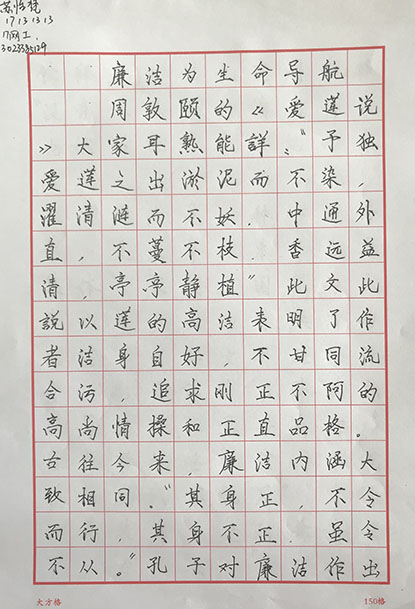 苏怡梵
17131313
17网工.
3023335129
廉洁为生命导航
周敦颐的《爱莲说
》大家耳熟能詳。“予独
愛蓮之出淤泥而不染,
濯清涟而不妖. 中通外
直,不蔓不枝.香远益
清,亭亭静植”此文此
說以莲的高洁表明了作
者洁身自好,不甘同流
合污,追求刚正不阿的
高尚情操和正直品格。
古往今来,廉洁内涵大
致相同。“其身正,不令
而行,其身不正.虽令
不从。”孔子对廉洁作出
大方格
150格